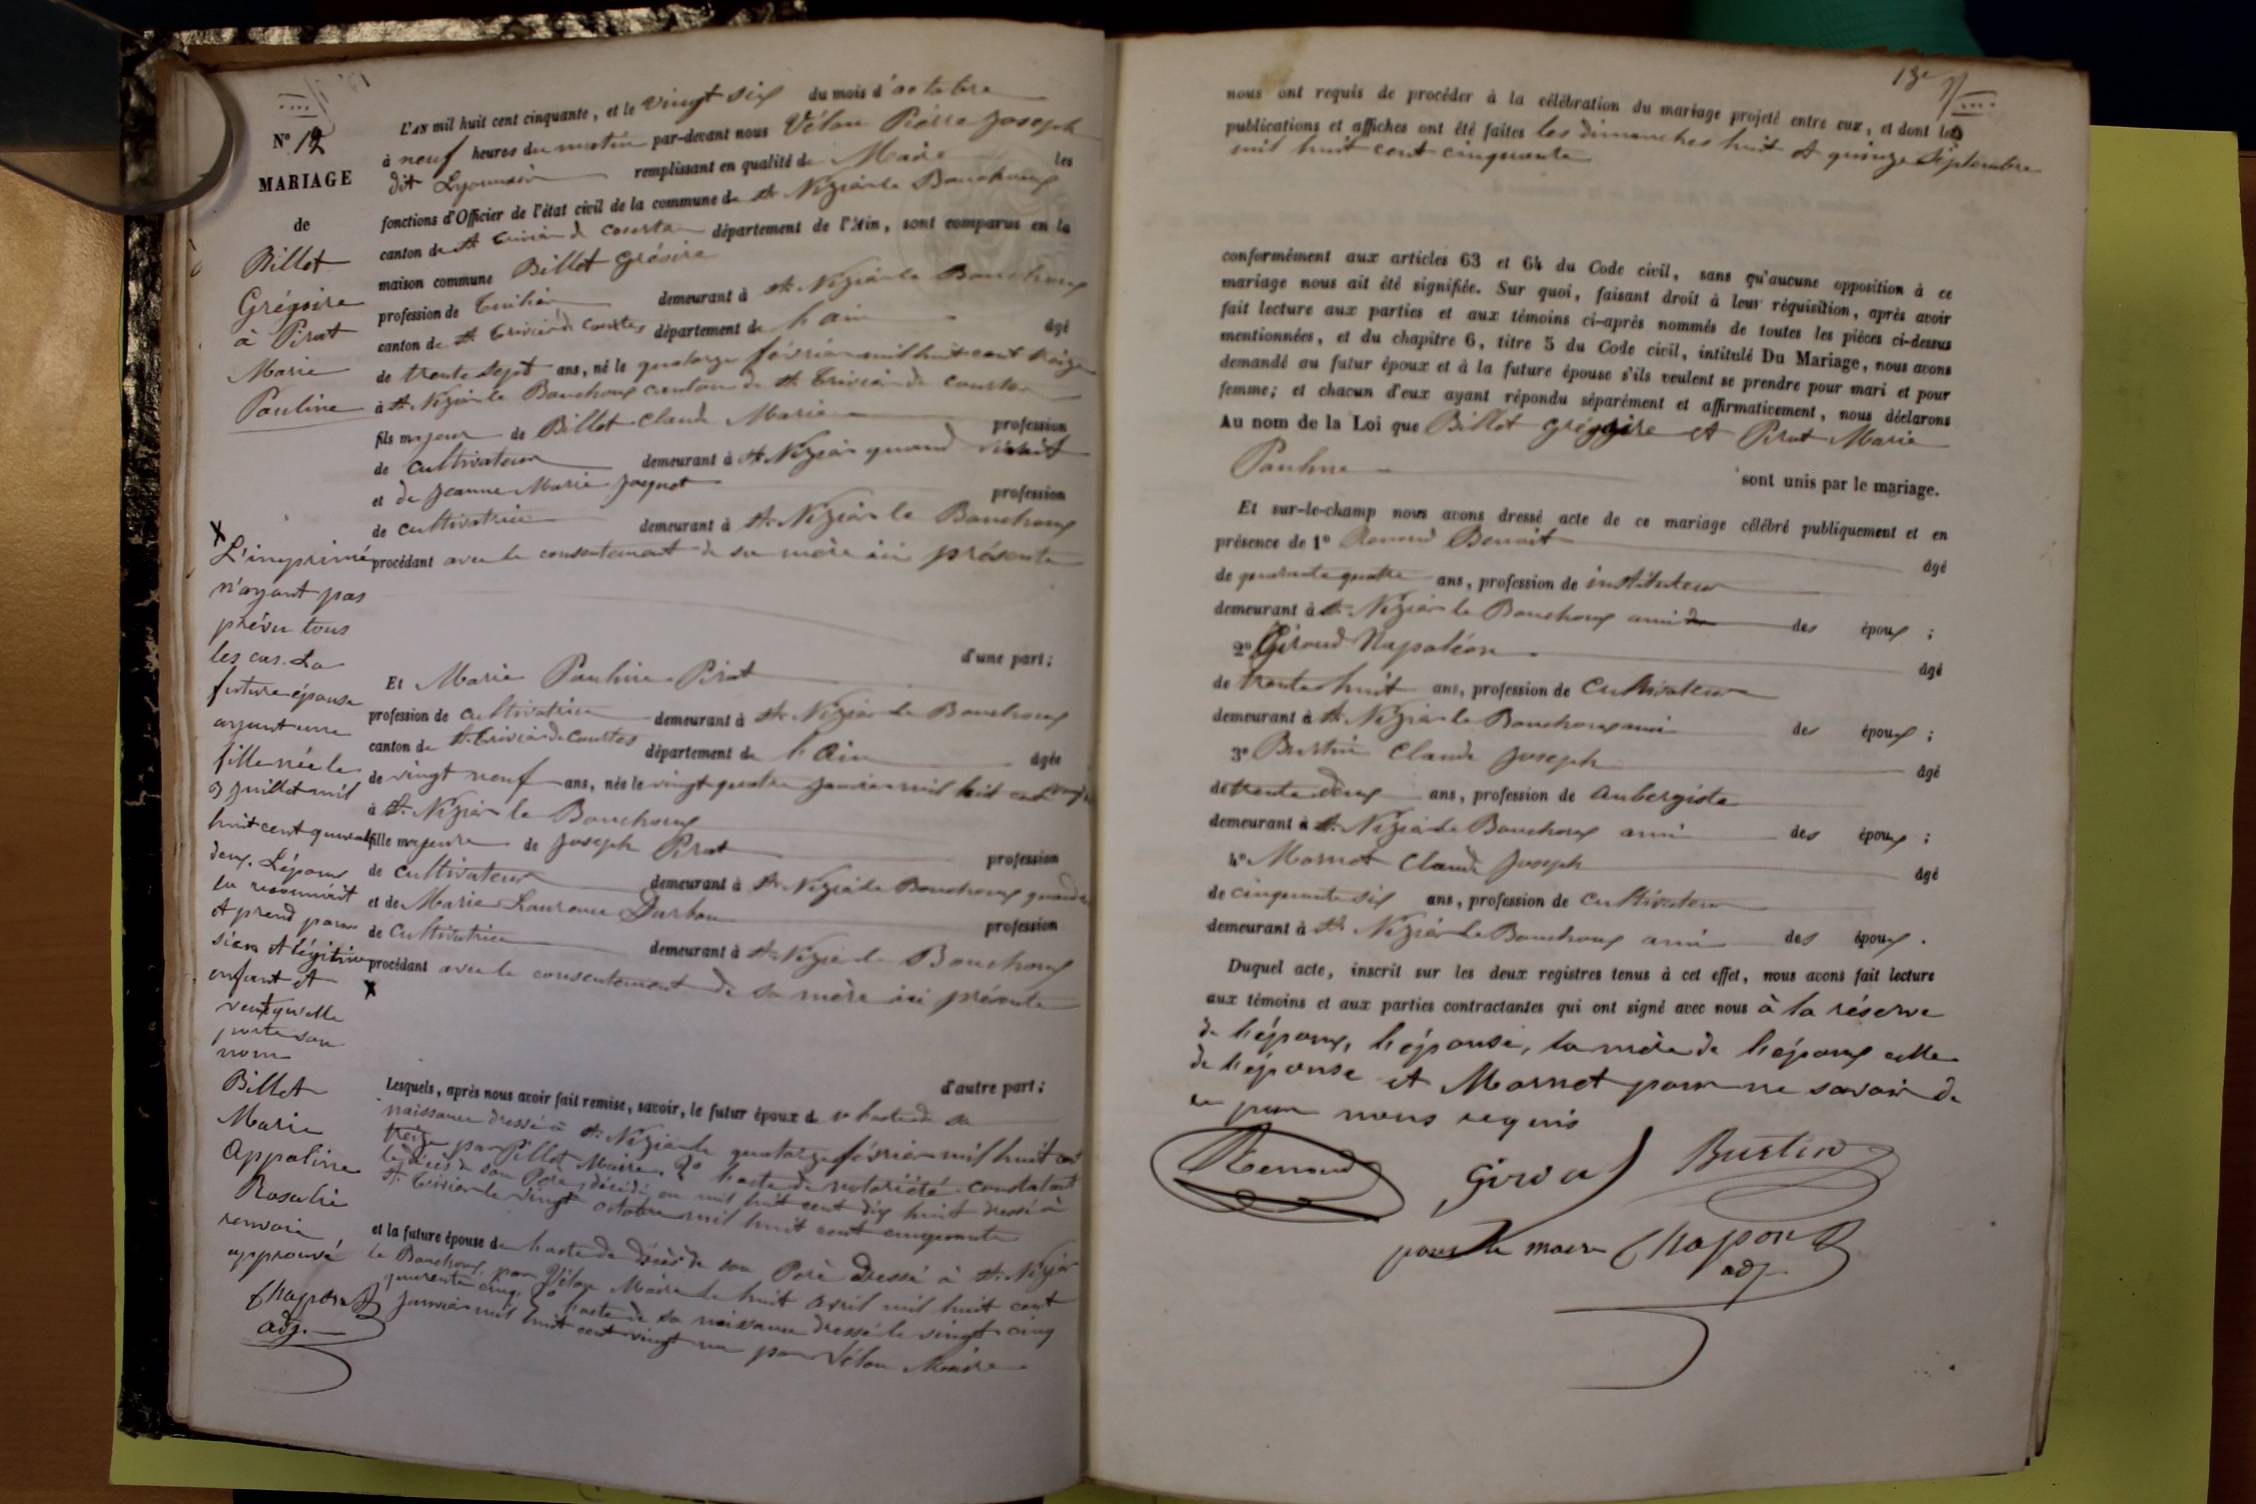 N° 12
MARIAGE
de
Billet
Grégoire
à Pirat
Marie
Pauline
L'AN mil huit cent cinquante, et le vingt six du mois d'octobre
à neuf heures du matin par-devant nous Vélon Pierre Joseph
dit Lyonnais remplissant en qualité de Maire les
fonctions d'Officier de l'état civil de la commune de St Nizier le Bouchoux
canton de St Trivier de Courtes département de l'Ain, sont comparus en la
maison commune Billet Grégoire
profession de demeurant à St Nizier le Bouchoux
canton de St Trivier de Courtes département de l'ain âgé
de trente sept ans, né le quatorze février mil huit cent treize
à St Nizier le Bouchoux canton de St Trivier de Courtes
fils majeur de Billet Claude Marie profession
de cultivateur demeurant à St Nizier quand vivait
et de Jeanne Marie profession
de cultivatrice demeurant à St Nizier le Bouchoux
procédant avec le consentement de sa mère ici présente
d'une part;
Et Marie Pauline Pirat
profession de cultivatrice demeurant à St Nizier le Bouchoux
canton de St Trivier de Courtes département de l'ain âgée
de vingt neuf ans, née le vingt quatre janvier mil huit cent vingt
à St Nizier le Bouchoux
fille majeure de Joseph Pirat profession
de cultivateur demeurant à St Nizier le Bouchoux quand
et de Marie Laurence profession
de cultivatrice demeurant à St Nizier le Bouchoux
procédant avec le consentement de sa mère ici présente
X
d'autre part;
Lesquels, après nous avoir fait remise, savoir, le futur époux de 1° l'acte de sa
naissance dressé à St Nizier le quatorze février mil huit cent
treize par Pillot Maire. 2° l'acte de notoriété constatant
le décès de son Père, décédé en mil huit cent dix huit dressé à
St Trivier le vingt octobre mil huit cent cinquante
et la future épouse de l'acte de décès de son Père dressé à St Nizier
le Bouchoux par Vélon Maire le huit avril mil huit cent
quarante cinq. 2° l'acte de sa naissance dressé le vingt cinq
janvier mil huit cent vingt un par Vélon Maire
X
L'imprimé
n'ayant pas
prévu tous
les cas. La
future épouse
ayant une
fille née le
3 juillet mil
huit cent quarante
deux. L'époux
la reconnait
et prend pour
sien et légitime
enfant et
veut qu'elle
porte son
nom
Billet
Marie
Appoline
Rosalie
renvoi
approuvé
Chapon
adj.
13e
nous ont requis de procéder à la célébration du mariage projeté entre eux, et dont les
publications et affiches ont été faites les dimanches huit et quinze Septembre
mil huit cent cinquante
conformément aux articles 63 et 64 du Code civil, sans qu'aucune opposition à ce
mariage nous ait été signifiée. Sur quoi, faisant droit à leur réquisition, après avoir
fait lecture aux parties et aux témoins ci-après nommés de toutes les pièces ci-dessus
mentionnées, et du chapitre 6, titre 5 du Code civil, intitulé Du Mariage, nous avons
demandé au futur époux et à la future épouse s'ils veulent se prendre pour mari et pour
femme; et chacun d'eux ayant répondu séparément et affirmativement, nous déclarons
Au nom de la Loi que Billet Grégoire et Pirat Marie
Pauline sont unis par le mariage.
Et sur-le-champ nous avons dressé acte de ce mariage célébré publiquement et en
présence de 1° Renoud Benoit âgé
de quarante quatre ans, profession de instituteur
demeurant à St Nizier le Bouchoux ami des époux ;
2° Giroud Napoléon âgé
de trente huit ans, profession de Cultivateur
demeurant à St Nizier le Bouchoux ami des époux ;
3° Burtin Claude Joseph âgé
de trente deux ans, profession de Aubergiste
demeurant à St Nizier le Bouchoux ami des époux ;
4° Mornet Claude Joseph âgé
de cinquante six ans, profession de Cultivateur
demeurant à St Nizier le Bouchoux ami des époux .
Duquel acte, inscrit sur les deux registres tenus à cet effet, nous avons fait lecture
aux témoins et aux parties contractantes qui ont signé avec nous à la réserve
de l'époux, l'épouse, la mère de l'époux celle
de l'épouse et Mornet pour ne savoir de
ce par nous requis
Renoud Giroud Burtin
pour le maire Chapon
adj